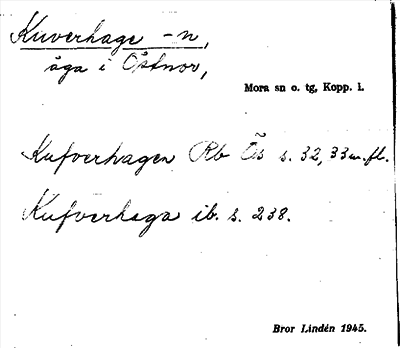 Kuverhage -n,
äga i Östnor,
Mora sn o. tg, Kopp. l.
Kufverhagen Rb Ös s. 32, 33 m. fl.
Kufverhaga ib. s. 238.
Bror Lindén 1945.